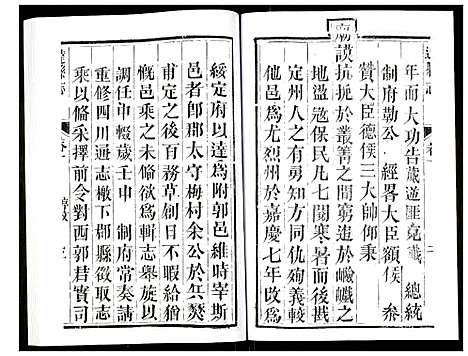 年而大功告蕆逆匪竟殲　總統
制府勒公　經畧大臣額侯　叅
贊大臣德侯三大帥仰秉
廟謨抗扼於叢箐之間窮追於巉巘之
地溫恤保民凡七閱寒暑而
定州人之有勇知方同仇殉義較
他邑爲尤著於嘉慶七年改爲
綏定府以達爲附郭邑維時宰斯
邑者郎郡太守梅村余公於兵燹
甫定之後百務草創日不暇給猶
慨邑乘之未脩欲爲輯志舉旋以
調任中輟歲壬申　制府常奏請
重修四川通志檄下郡縣徵取志
乘以脩采擇前令對西郭君實司
達縣志
卷